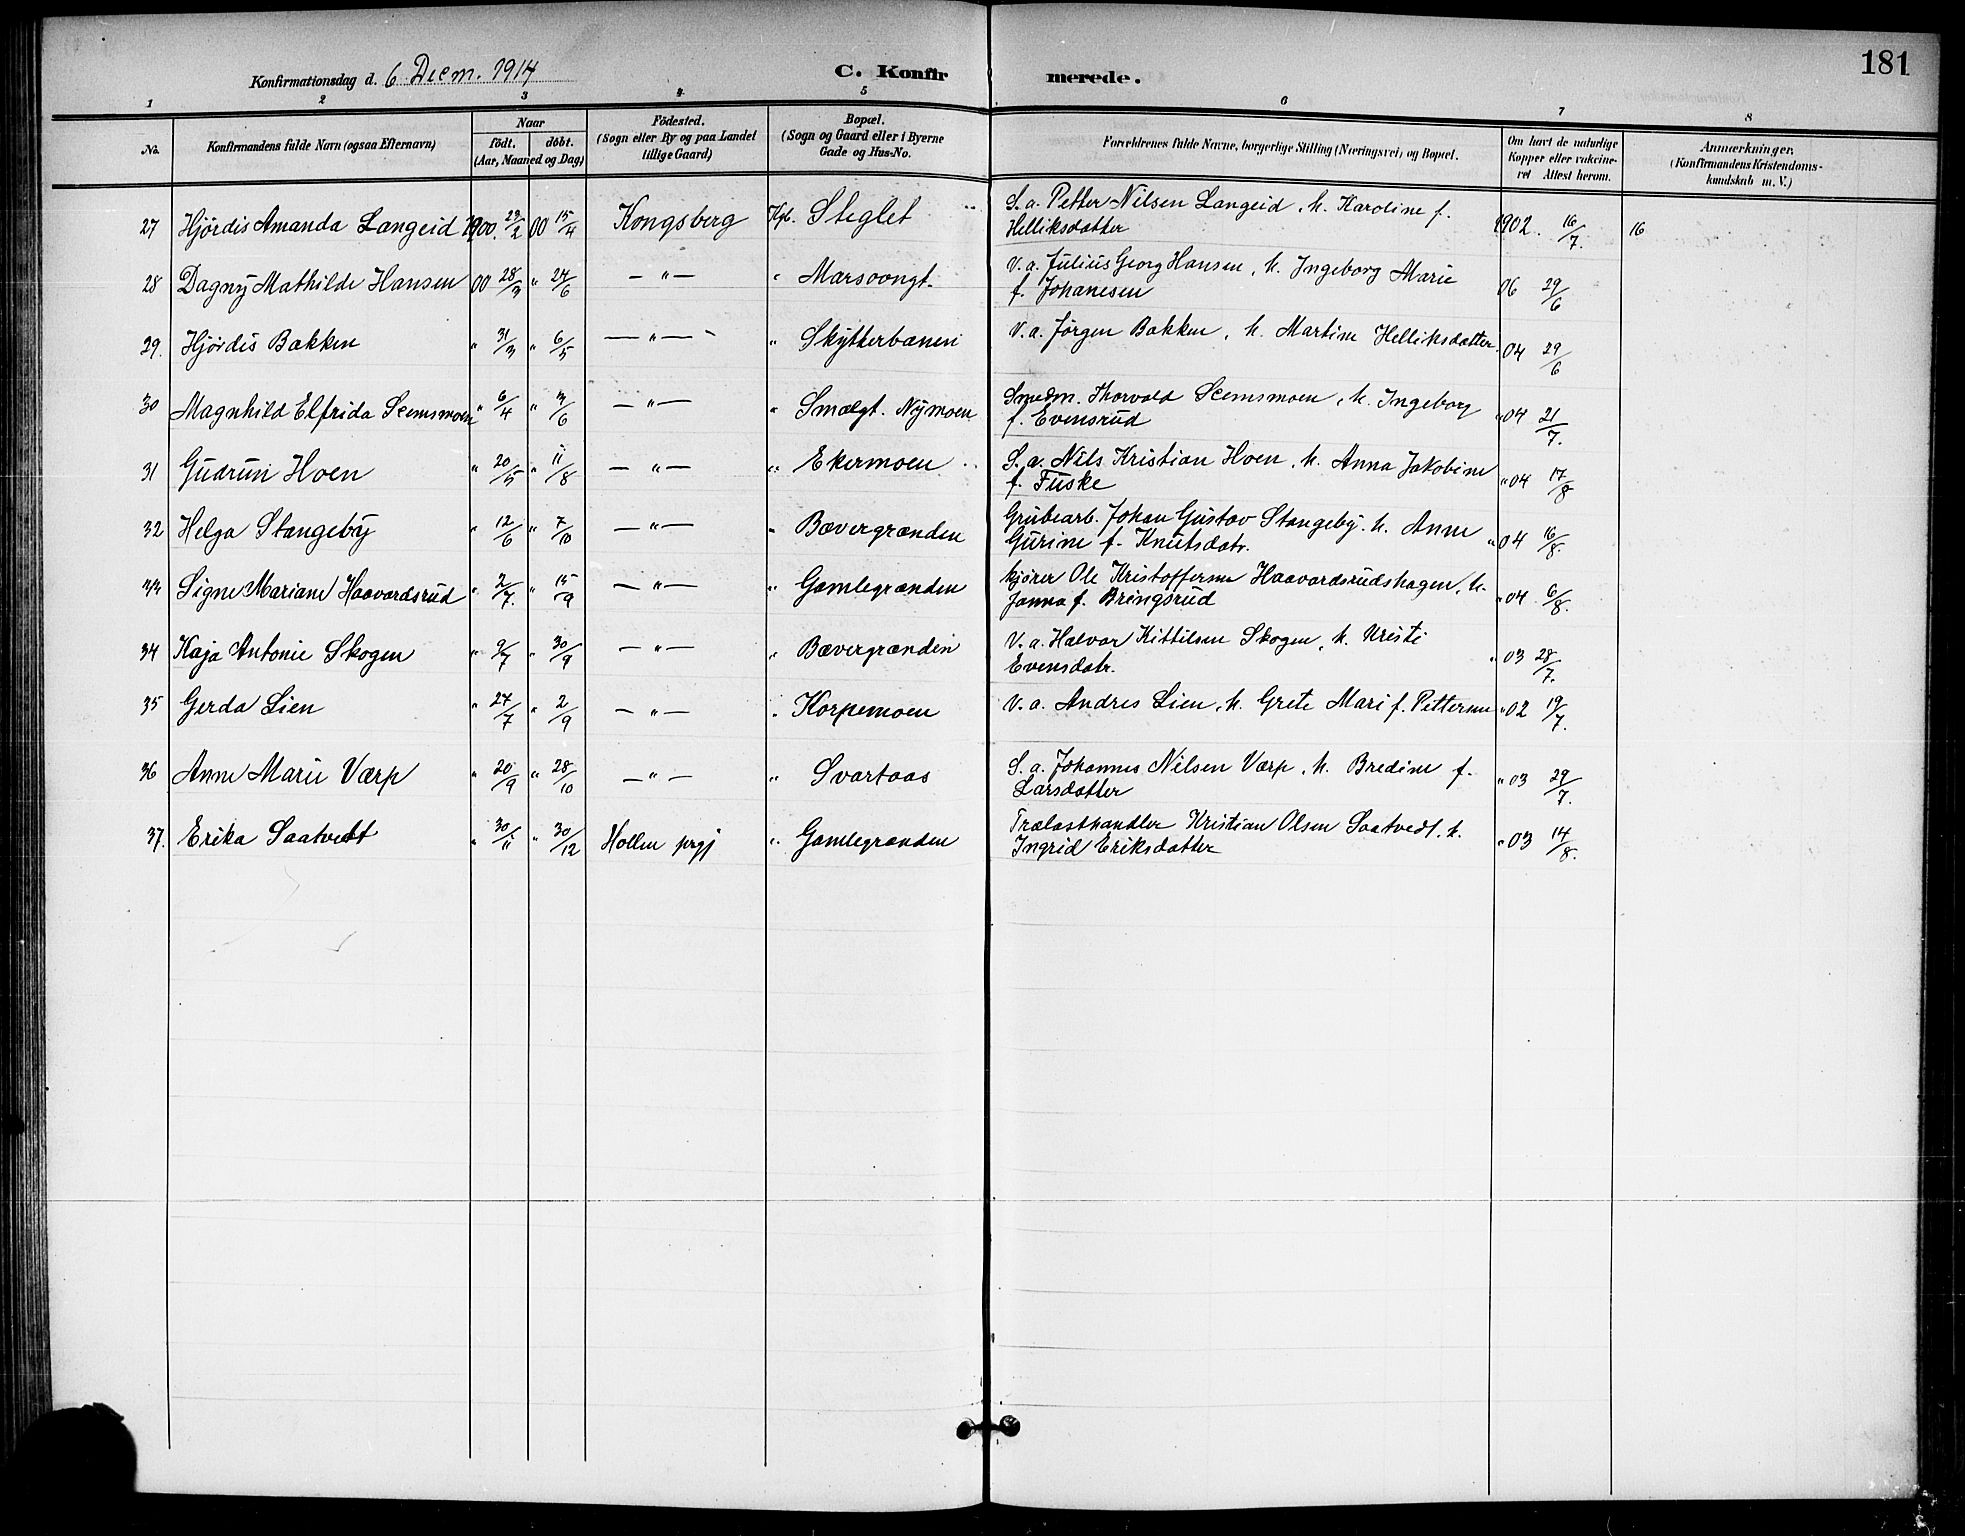 181
Konfirmationsdag d. 6 Decm. 1914
C. Konfirmerede.
1 2 3 4 5 6 7 8
No.
Konfirmandens fulde Navn (ogsaa Efternavn)
Naar
födt. döbt.
(Aar, Maaned og Dag)
Födested.
(Sogn eller By og paa Landet
tillige Gaard)
Bopæl.
(Sogn og Gaard eller i Byerne
Gade og Hus-No.
Forældrenes fulde Navne, borgerlige Stilling (Næringsvei) og Bopæl.
Om havt de naturlige
Kopper eller vakcine-
ret Attest herom.
Anmærkninger.
(Konfirmandens Kristendoms-
kundskab m. V.)
27 Hjördis Amanda Langeid 1900. 29/2 00 15/4 Kongsberg Kgb. Steglet S. a. Petter Nilsen Langeid, h. Karoline f. 1902. 16/7. 16
Helliksdatter
28 Dagny Mathilde Hansen 00 28/3 " 24/6 — " — " Marsoongt. V. a. Julius Georg Hansen, h. Ingeborg Marie 06 29/6
f. Johanesen
29. Hjördis Bakken " 31/3 " 6/5 — " — " Skytterbanen V. a. Jörgen Bakken, h. Martine Helliksdatter 04 29/6
30 Magnhild Elfrida Seemsmoen " 6/4 " 3/6 — " — " Smælgt. Nymoen Smedm. Thorvald Seemsmoen, h. Ingeborg " 04 21/7.
f. Evensrud
31 Gudrun Hoen " 20/5 " 11/8 — " — " Ekermoen S. a. Nils Kristian Hoen, h. Anna Jakobine " 04 17/8
f. Fuske
32 Helga Stangeby " 12/6 " 7/10 — " — " Bævergrænden Grubearb. Johan Gustav Stangeby. h. Anne " 04 16/8.
Gurine f. Knutsdatr.
33 Signe Mariane Haavardsrud " 2/7. " 15/9 — " — " Gamlegrænden kjörer Ole Kristoffersen Haavardsrudshagen, h. " 04 6/8.
Janna f. Bringsrud
34 Kaja Antonie Skogen " 9/7 " 30/9 — " — " Bævergrænden V. a. Halvor Kittilsen Skogen, h. Kristi " 03 28/7.
Evensdatr.
35 Gerda Lien " 27/7 " 2/9 — " — " Korpemoen V. a. Andres Lien, h. Grete Mari f. Pettersen " 02 19/7.
36 Anne Marie Værp " 20/9 " 28/10 — " — " Svartaas S. a. Johannes Nilsen Værp, h. Bredine f. " 03 29/7.
Larsdatter
37. Erika Saatvedt " 30/11 " 30/12 Hollen prgj " Gamlegrænden Trælasthandler Kristian Olsen Saatvedt, h. " 03 14/8.
Ingrid Eriksdatter